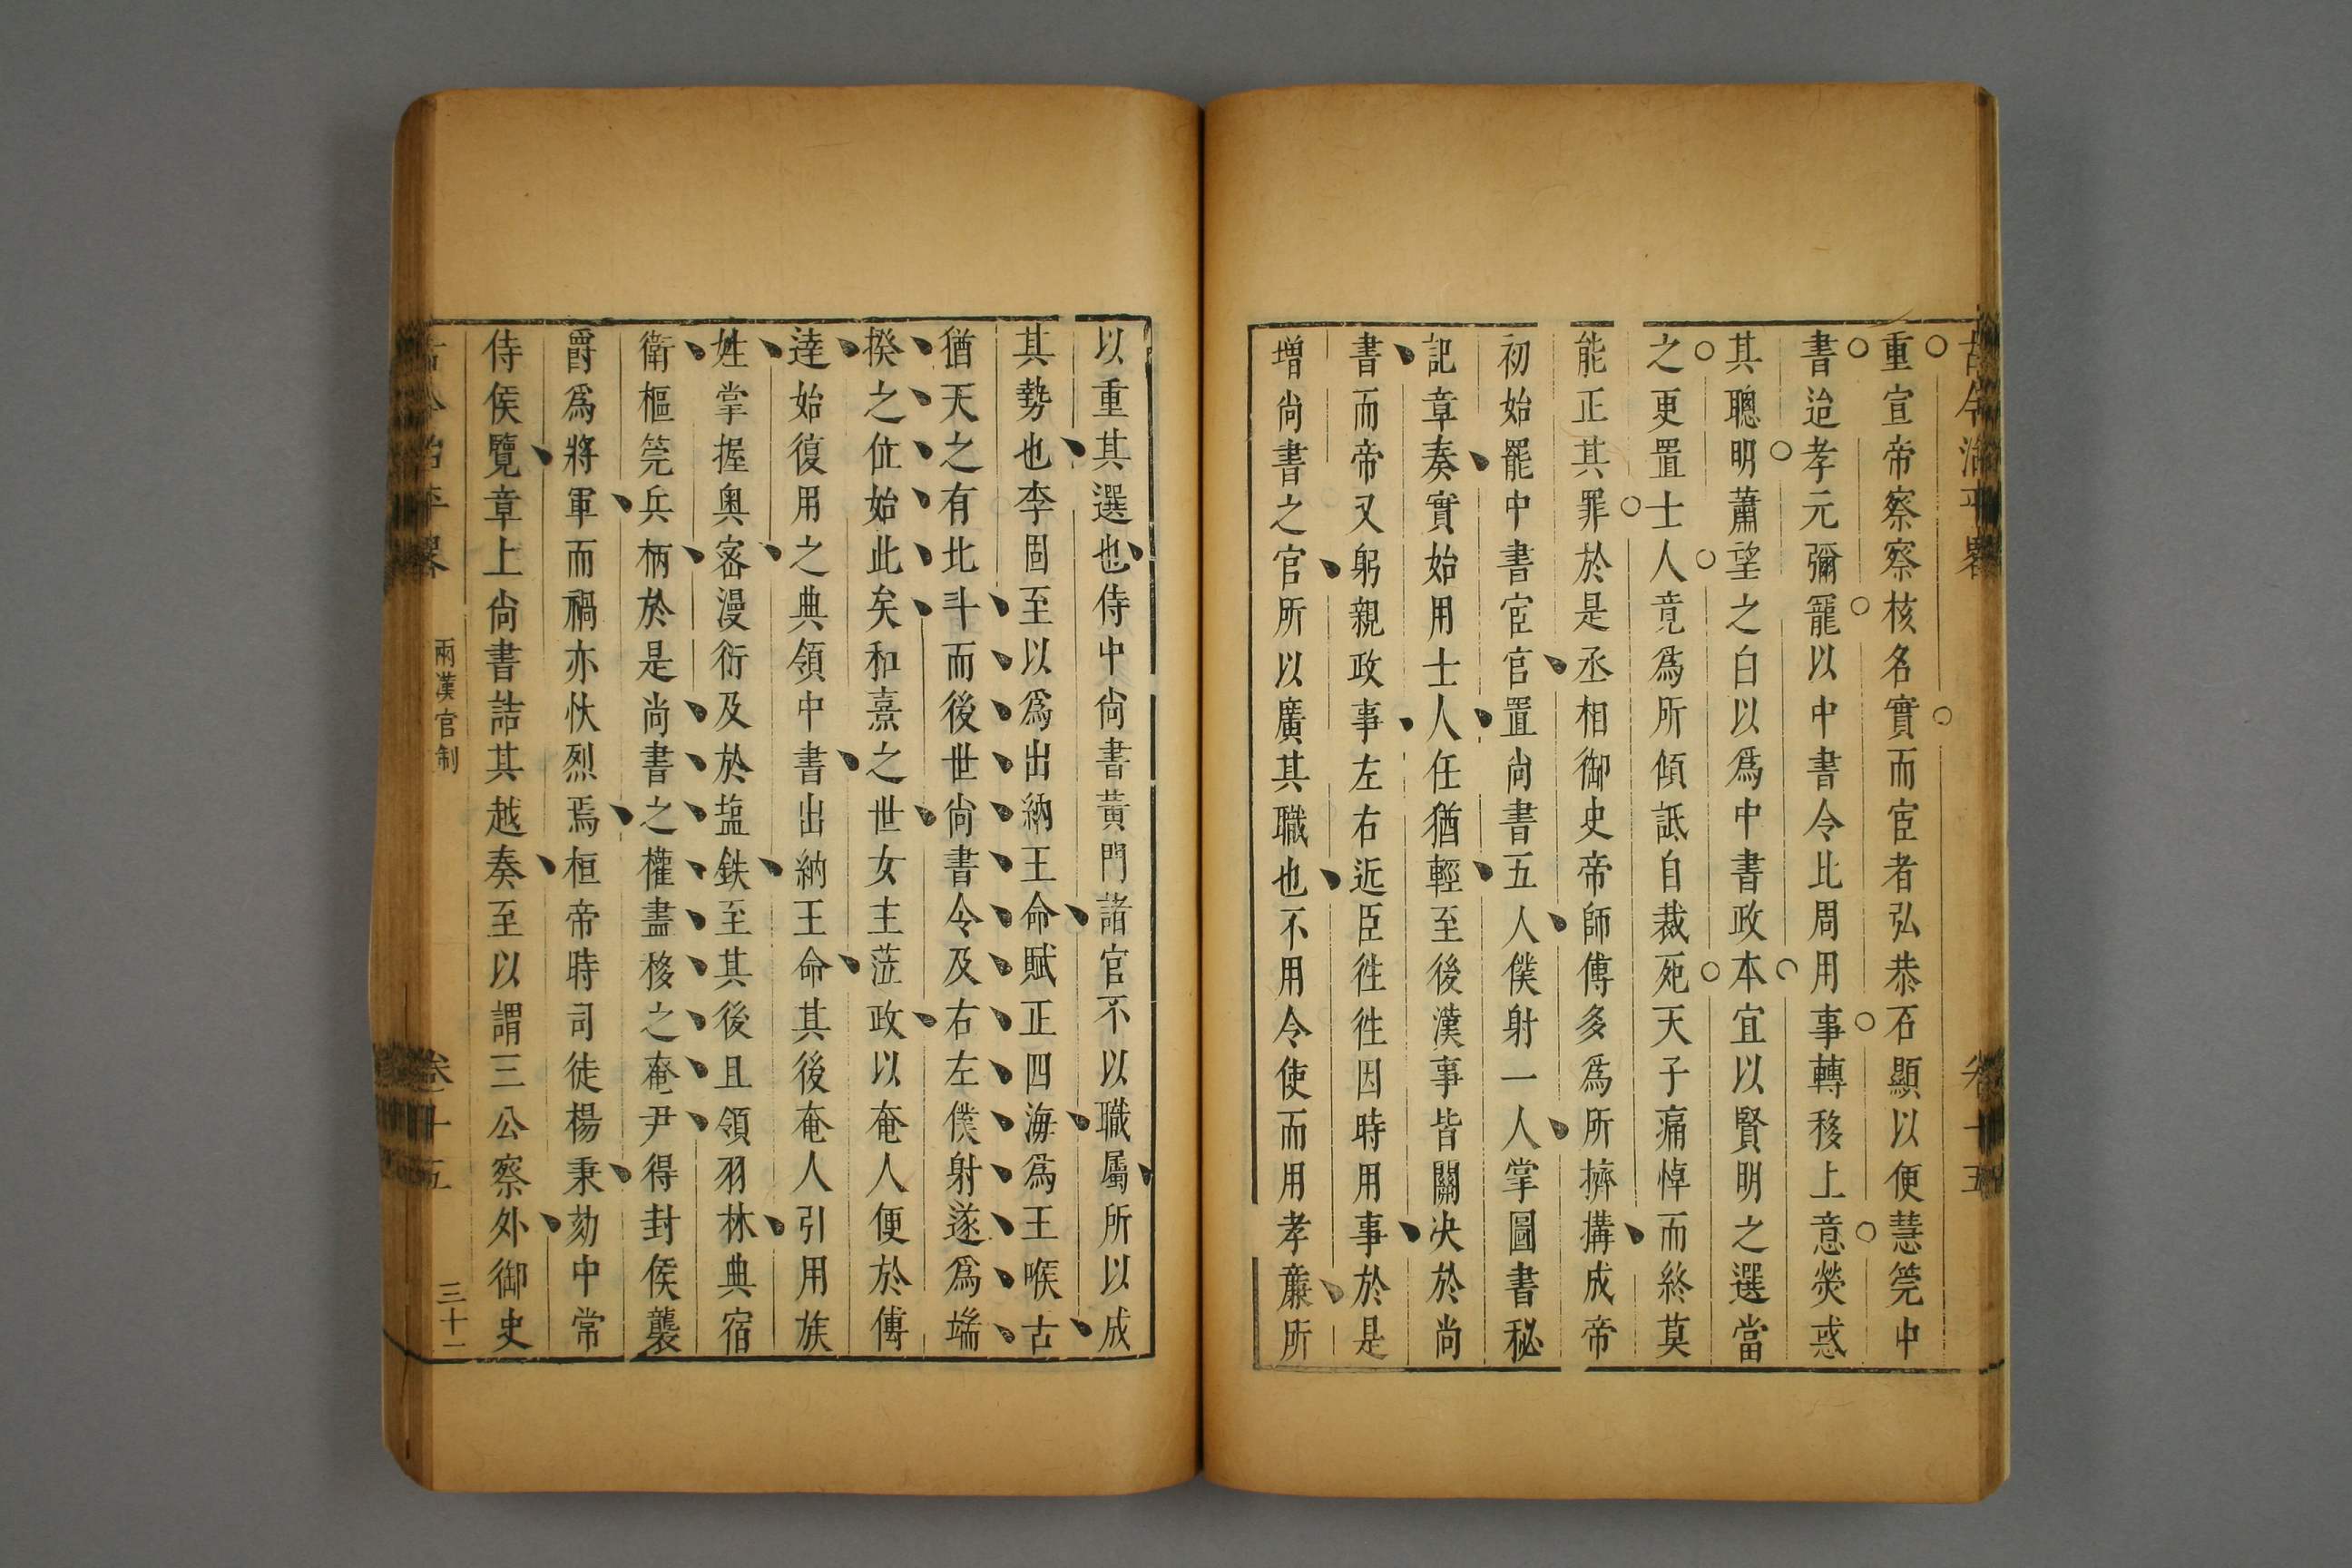 古今治平畧
卷十五
重宣帝察察核名實而宦者弘恭石顯以便慧筦中
書迨孝元彌寵以中書令比周用事轉移上意熒惑
其聰明蕭望之白以爲中書政本宜以賢明之選當
之更置士人竟爲所傾詆自裁死天子痛悼而終莫
能正其罪於是丞相御史帝師傅多爲所擠搆成帝
初始罷中書宦官置尚書五人僕射一人掌圖書秘
記章奏實始用士人任猶輕至後漢事皆關决於尚
書而帝又躬親政事左右近臣徃徃因時用事於是
增尚書之官所以廣其職也不用令使而用孝廉所
以重其選也侍中尚書黃門諸官不以職屬所以成
其勢也李固至以爲出納王命賦正四海爲王喉古
猶天之有北斗而後世尚書令及右左僕射遂爲端
揆之位始此矣和熹之世女主蒞政以奄人便於傳
達始復用之典領中書出納王命其後奄人引用族
姓掌握奥宻漫衍及於塩鉄至其後且領羽林典宿
衛樞筦兵柄於是尚書之權盡移之奄尹得封侯襲
爵爲將軍而禍亦忕烈焉桓帝時司徒楊秉劾中常
侍侯覽章上尚書詰其越奏至以謂三公察外御史
古今治平畧
兩漢官制
卷十五
三十一